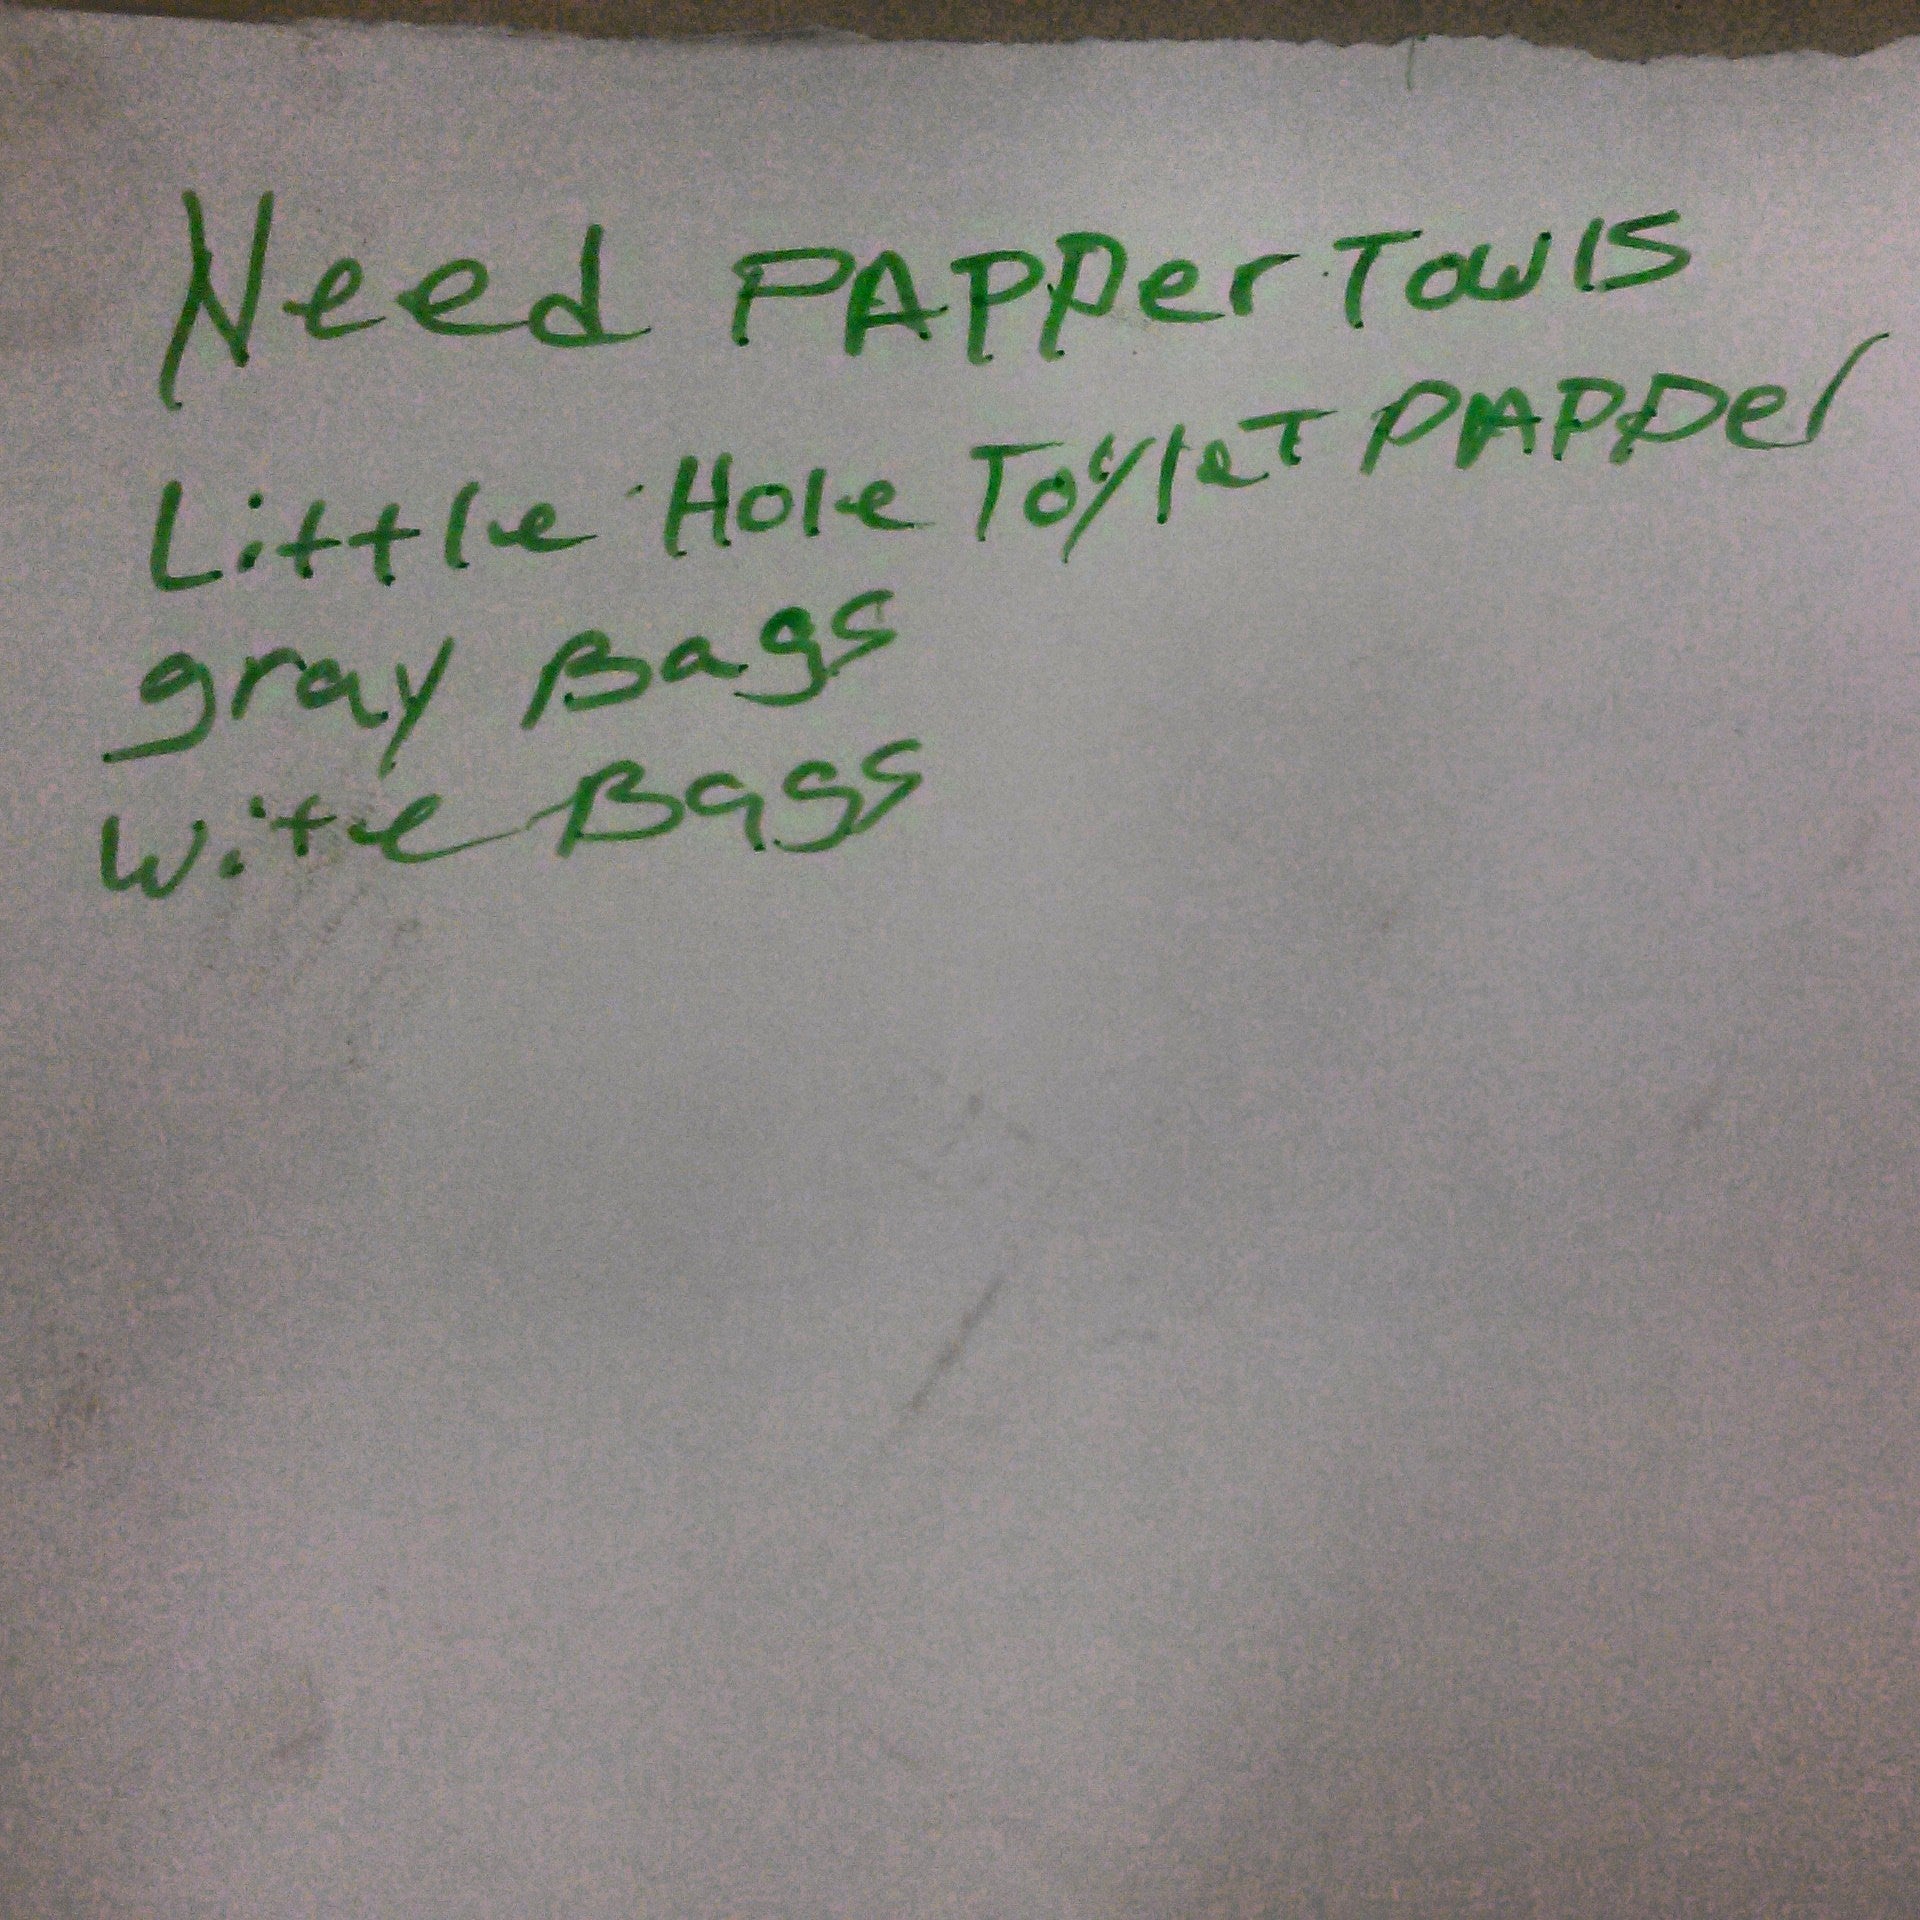 Need PAPPer Towls
Little Hole Toylet PAPPer
gray Bags
wite Bags